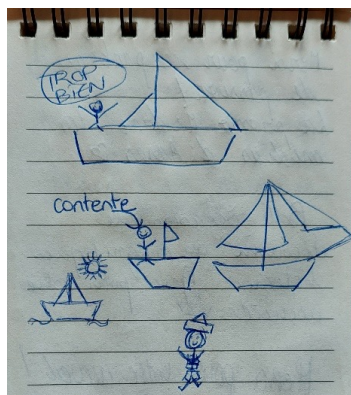 TROP
BIEN
contente